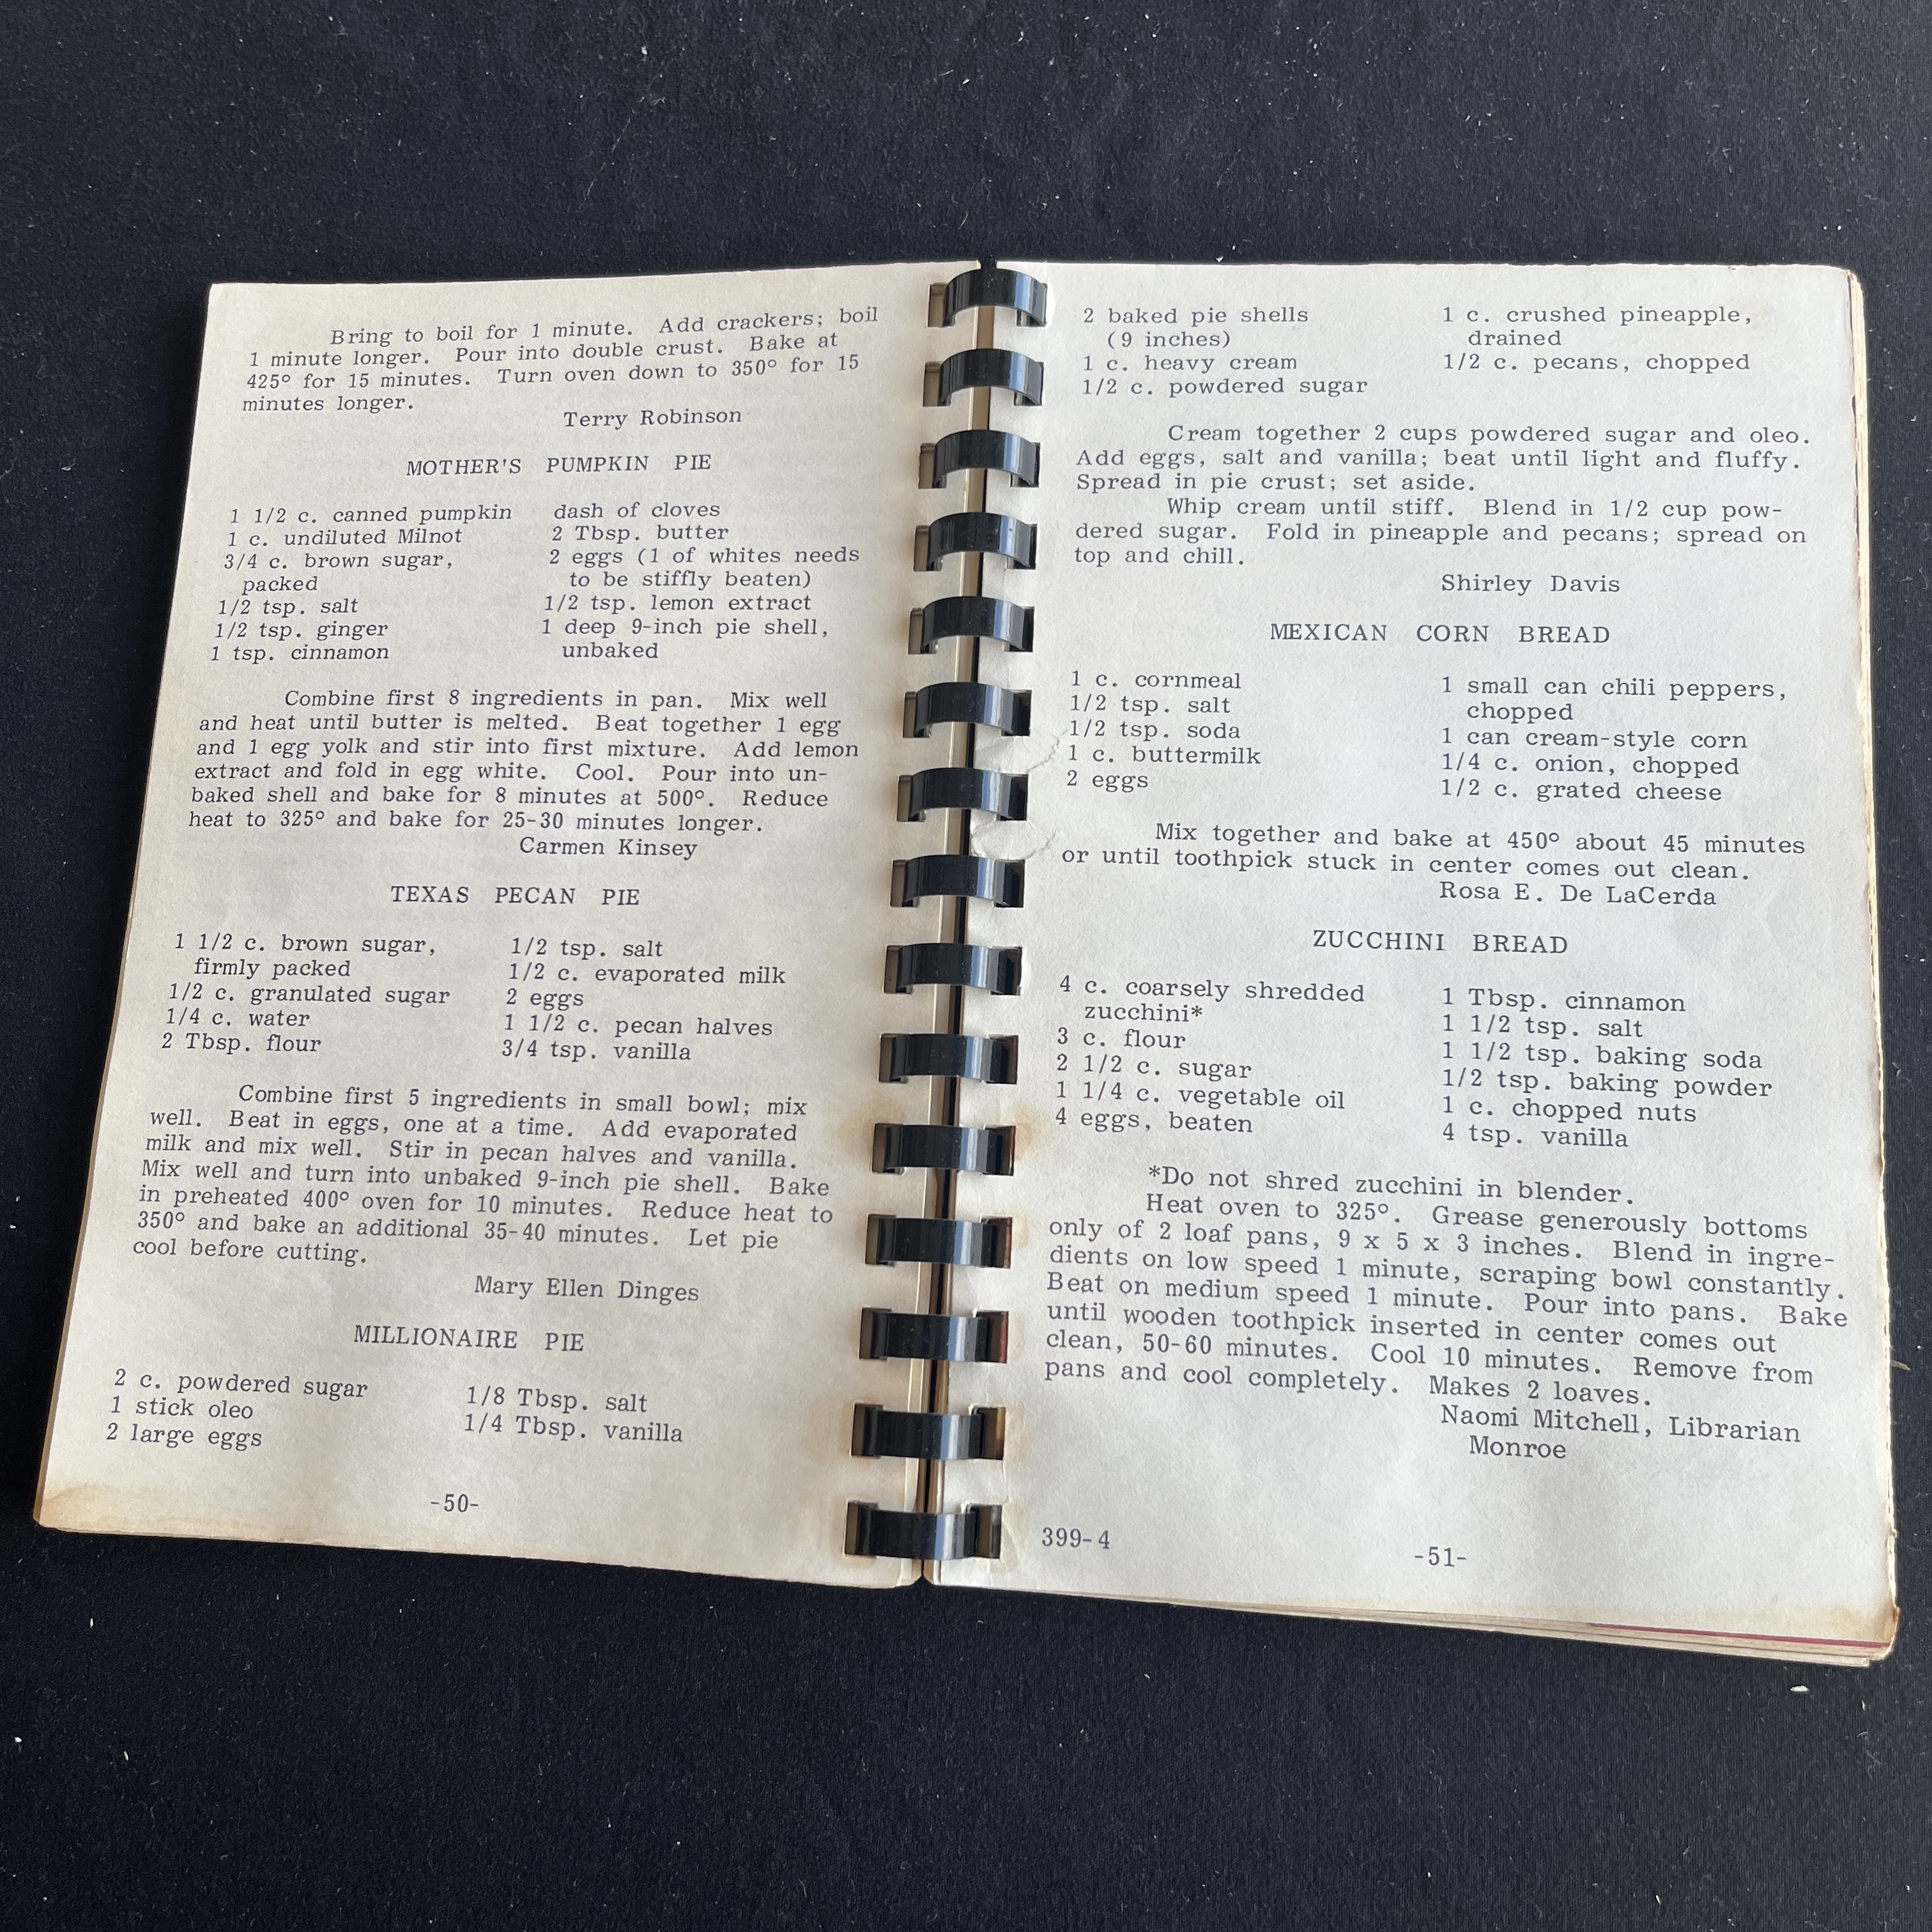 Bring to boil for 1 minute. Add crackers; boil
1 minute longer. Pour into double crust. Bake at
425° for 15 minutes. Turn oven down to 350° for 15
minutes longer.
Terry Robinson
MOTHER'S PUMPKIN PIE
1 1/2 c. canned pumpkin
1 c. undiluted Milnot
3/4 c. brown sugar,
packed
1/2 tsp. salt
1/2 tsp. ginger
1 tsp. cinnamon
dash of cloves
2 Tbsp. butter
2 eggs (1 of whites needs
to be stiffly beaten)
1/2 tsp. lemon extract
1 deep 9-inch pie shell,
unbaked
Combine first 8 ingredients in pan. Mix well
and heat until butter is melted. Beat together 1 egg
and 1 egg yolk and stir into first mixture. Add lemon
extract and fold in egg white. Cool. Pour into un-
baked shell and bake for 8 minutes at 500°. Reduce
heat to 325° and bake for 25-30 minutes longer.
Carmen Kinsey
TEXAS PECAN PIE
1 1/2 c. brown sugar,
firmly packed
1/2 c. granulated sugar
1/4 c. water
2 Tbsp. flour
1/2 tsp. salt
1/2 c. evaporated milk
2 eggs
1 1/2 c. pecan halves
3/4 tsp. vanilla
Combine first 5 ingredients in small bowl; mix
well. Beat in eggs, one at a time. Add evaporated
milk and mix well. Stir in pecan halves and vanilla.
Mix well and turn into unbaked 9-inch pie shell. Bake
in preheated 400° oven for 10 minutes. Reduce heat to
350° and bake an additional 35-40 minutes. Let pie
cool before cutting.
Mary Ellen Dinges
MILLIONAIRE PIE
2 c. powdered sugar
1 stick oleo
2 large eggs
1/8 Tbsp. salt
1/4 Tbsp. vanilla
-50-
2 baked pie shells
(9 inches)
1 c. heavy cream
1/2 c. powdered sugar
1 c. crushed pineapple,
drained
1/2 c. pecans, chopped
Cream together 2 cups powdered sugar and oleo.
Add eggs, salt and vanilla; beat until light and fluffy.
Spread in pie crust; set aside.
Whip cream until stiff. Blend in 1/2 cup pow-
dered sugar. Fold in pineapple and pecans; spread on
top and chill.
Shirley Davis
MEXICAN CORN BREAD
1 c. cornmeal
1/2 tsp. salt
1/2 tsp. soda
1 c. buttermilk
2 eggs
1 small can chili peppers,
chopped
1 can cream-style corn
1/4 c. onion, chopped
1/2 c. grated cheese
Mix together and bake at 450° about 45 minutes
or until toothpick stuck in center comes out clean.
Rosa E. De LaCerda
ZUCCHINI BREAD
4 c. coarsely shredded
zucchini*
3 c. flour
2 1/2 c. sugar
1 1/4 c. vegetable oil
4 eggs, beaten
1 Tbsp. cinnamon
1 1/2 tsp. salt
1 1/2 tsp. baking soda
1/2 tsp. baking powder
1 c. chopped nuts
4 tsp. vanilla
*Do not shred zucchini in blender.
Heat oven to 325°. Grease generously bottoms
only of 2 loaf pans, 9 x 5 x 3 inches. Blend in ingre-
dients on low speed 1 minute, scraping bowl constantly.
Beat on medium speed 1 minute. Pour into pans. Bake
until wooden toothpick inserted in center comes out
clean, 50-60 minutes. Cool 10 minutes. Remove from
pans and cool completely. Makes 2 loaves.
Naomi Mitchell, Librarian
Monroe
399-4
-51-